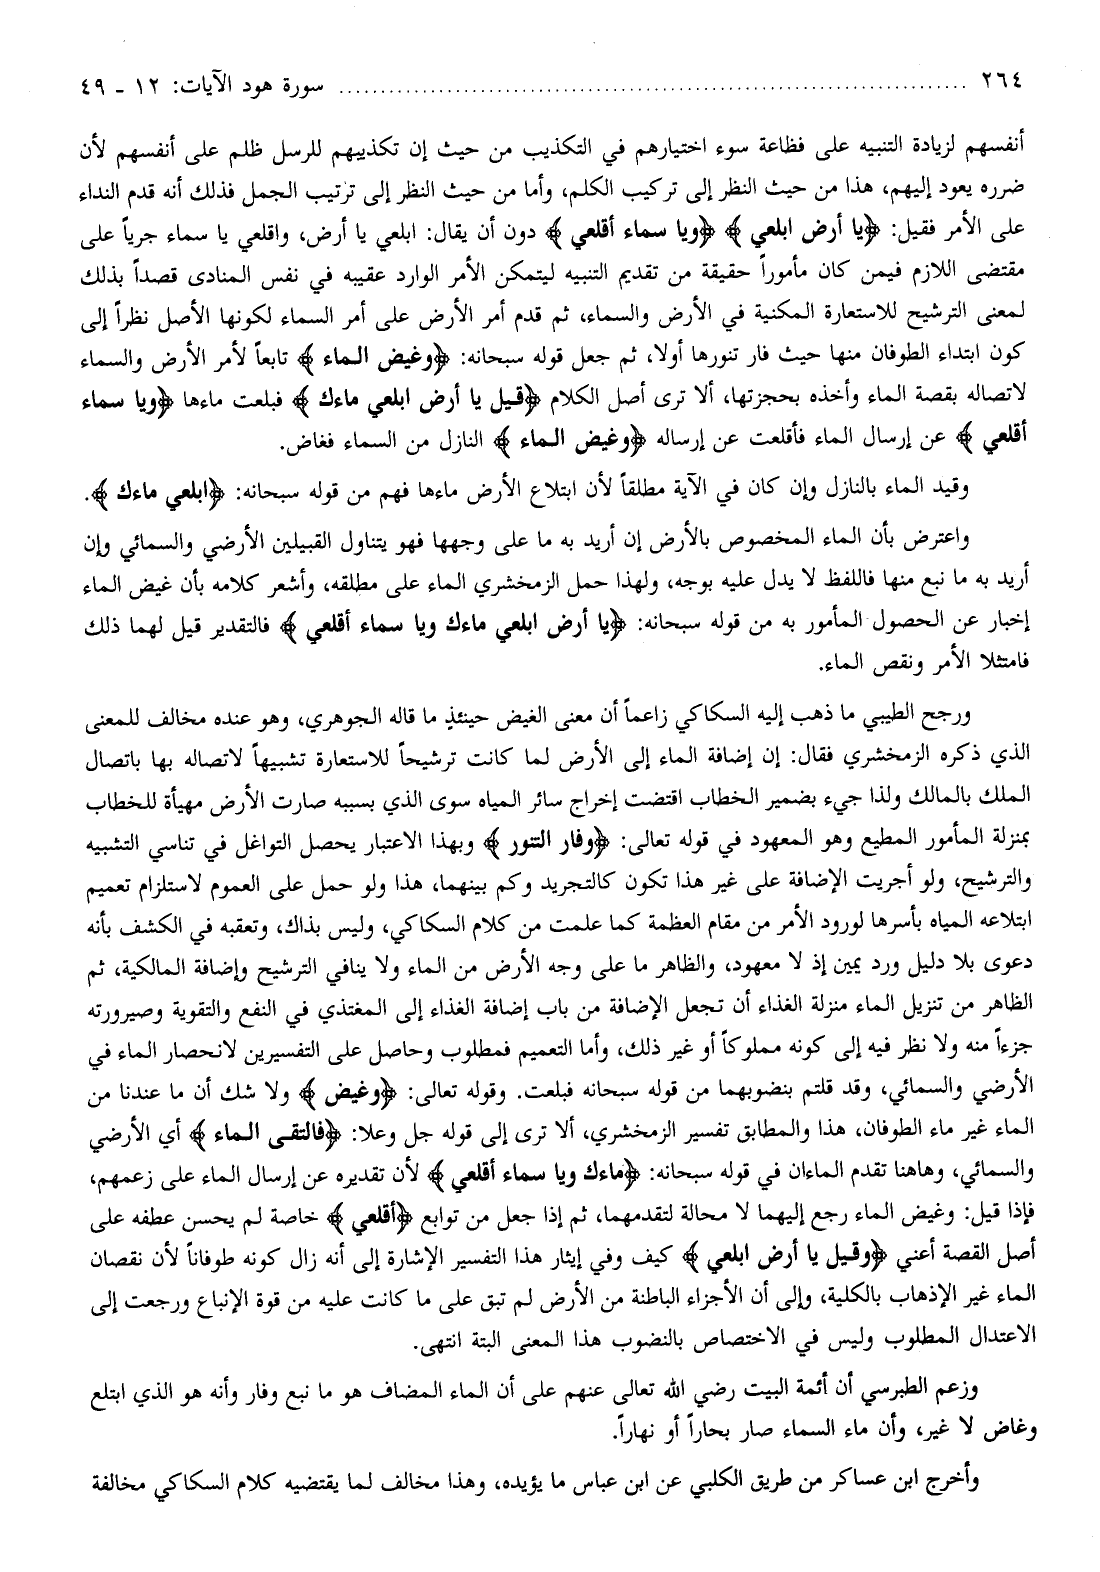 ٢٦٤ ........................................ سورة هود الآيات: ١٢ - ٤٩
أنفسهم لزيادة التنبيه على فظاعة سوء اختيارهم في التكذيب من حيث إن تكذيبهم للرسل ظلم على أنفسهم لأن
ضرره يعود إليهم، هذا من حيث النظر إلى تركيب الكلم، وأما من حيث النظر إلى ترتيب الجمل فذلك أنه قدم النداء
على الأمر فقيل: ﴿يا أرض ابلعي﴾ ﴿ويا سماء أقلعي﴾ دون أن يقال: ابلعي يا أرض، واقلعي يا سماء جرياً على
مقتضى اللازم فيمن كان مأموراً حقيقة من تقديم التنبيه ليتمكن الأمر الوارد عقيبه في نفس المنادى قصداً بذلك
لمعنى الترشيح للاستعارة المكنية في الأرض والسماء، ثم قدم أمر الأرض على أمر السماء لكونها الأصل نظراً إلى
كون ابتداء الطوفان منها حيث فار تنورها أولا، ثم جعل قوله سبحانه: ﴿وغيض الماء﴾ تابعاً لأمر الأرض والسماء
لاتصاله بقصة الماء وأخذه بحجزتها، ألا ترى أصل الكلام ﴿قيل يا أرض ابلعي ماءك﴾ فبلعت ماءها ﴿ويا سماء
أقلعي﴾ عن إرسال الماء فأقلعت عن إرساله ﴿وغيض الماء﴾ النازل من السماء فغاض.
وقيد الماء بالنازل وإن كان في الآية مطلقاً لأن ابتلاع الأرض ماءها فهم من قوله سبحانه: ﴿ابلعي ماءك﴾.
واعترض بأن الماء المخصوص بالأرض إن أريد به ما على وجهها فهو يتناول القبيلين الأرضي والسمائي وإن
أريد به ما نبع منها فاللفظ لا يدل عليه بوجه، ولهذا حمل الزمخشري الماء على مطلقه، وأشعر كلامه بأن غيض الماء
إخبار عن الحصول المأمور به من قوله سبحانه: ﴿يا أرض ابلعي ماءك ويا سماء أقلعي﴾ فالتقدير قيل لهما ذلك
فامتثلا الأمر ونقص الماء.
ورجح الطيبي ما ذهب إليه السكاكي زاعماً أن معنى الغيض حينئذٍ ما قاله الجوهري، وهو عنده مخالف للمعنى
الذي ذكره الزمخشري فقال: إن إضافة الماء إلى الأرض لما كانت ترشيحاً للاستعارة تشبيهاً لاتصاله بها باتصال
الملك بالمالك ولذا جيء بضمير الخطاب اقتضت إخراج سائر المياه سوى الذي بسببه صارت الأرض مهيأة للخطاب
بمنزلة المأمور المطيع وهو المعهود في قوله تعالى: ﴿وفار التنور﴾ وبهذا الاعتبار يحصل التواغل في تناسي التشبيه
والترشيح، ولو أجريت الإضافة على غير هذا تكون كالتجريد وكم بينهما، هذا ولو حمل على العموم لاستلزام تعميم
ابتلاعه المياه بأسرها لورود الأمر من مقام العظمة كما علمت من كلام السكاكي، وليس بذاك، وتعقبه في الكشف بأنه
دعوى بلا دليل ورد يمين إذ لا معهود، والظاهر ما على وجه الأرض من الماء ولا ينافي الترشيح وإضافة المالكية، ثم
الظاهر من تنزيل الماء منزلة الغذاء أن تجعل الإضافة من باب إضافة الغذاء إلى المغتذي في النفع والتقوية وصيرورته
جزءاً منه ولا نظر فيه إلى كونه مملوكاً أو غير ذلك، وأما التعميم فمطلوب وحاصل على التفسيرين لانحصار الماء في
الأرضي والسمائي، وقد قلتم بنضوبهما من قوله سبحانه فبلعت. وقوله تعالى: ﴿وغيض﴾ ولا شك أن ما عندنا من
الماء غير ماء الطوفان، هذا والمطابق تفسير الزمخشري، ألا ترى إلى قوله جل وعلا: ﴿فالتقى الماء﴾ أي الأرضي
والسمائي، وهاهنا تقدم الماءان في قوله سبحانه: ﴿ماءك ويا سماء أقلعي﴾ لأن تقديره عن إرسال الماء على زعمهم،
فإذا قيل: وغيض الماء رجع إليهما لا محالة لتقدمهما، ثم إذا جعل من توابع ﴿أقلعي﴾ خاصة لم يحسن عطفه على
أصل القصة أعني ﴿وقيل يا أرض ابلعي﴾ كيف وفي إيثار هذا التفسير الإشارة إلى أنه زال كونه طوفاناً لأن نقصان
الماء غير الإذهاب بالكلية، وإلى أن الأجزاء الباطنة من الأرض لم تبق على ما كانت عليه من قوة الإنباع ورجعت إلى
الاعتدال المطلوب وليس في الاختصاص بالنضوب هذا المعنى البتة انتهى.
وزعم الطبرسي أن أئمة البيت رضي الله تعالى عنهم على أن الماء المضاف هو ما نبع وفار وأنه هو الذي ابتلع
وغاض لا غير، وأن ماء السماء صار بحاراً أو نهاراً.
وأخرج ابن عساكر من طريق الكلبي عن ابن عباس ما يؤيده، وهذا مخالف لما يقتضيه كلام السكاكي مخالفة